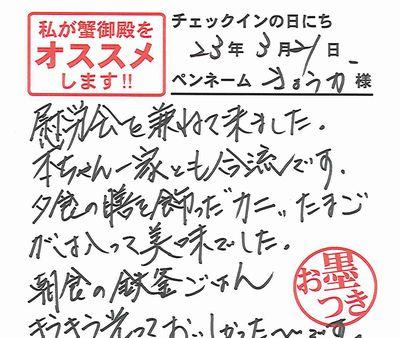 私が蟹御殿を
オススメ
します!!
チェックインの日にち
23年3月21日
ペンネーム きょうか 様
慰労会を兼ねて来ました。
本ちゃん一家とも合流です。
夕食の膳を飾った"カニ"たまご
が入って美味でした。
朝食の鉄釜ごはん
キラキラ光っておいしかった〜です。
お墨つき